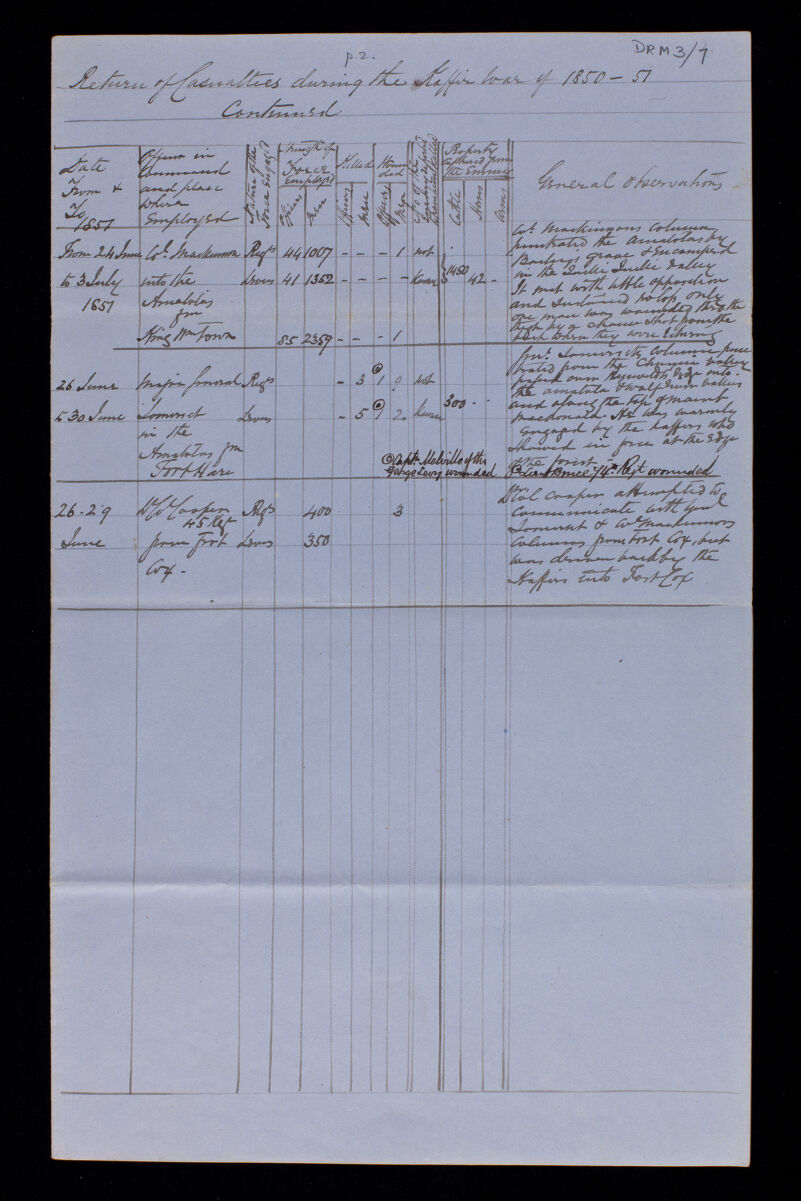 p. 2.
DRM 3/7
Return of Casualties during the Kaffir War of 1850 – 51
Continued
Date From & To 1851
Officer in Command and place where Employed
Nature of the Force Engaged
Strength of Force Employed
Officers
Men
Killed
Officers
Men
Wounded
Officers
Men
Property captured from the Enemy
Cattle
Horses
Arms
General Observations
From 24 June Col. Mackinnon Regs 44 1007 - - - 1 not
to 3 July into the Levies 41 1352 - - - - known 1450 42 -
1851 Amatolas
fm
King Wm Town 85 2359 - - - 1
Col. Mackinnons Column
penetrated the Amatolas by
Baileys grave & Encamped
in the Quilie Quilie Valley
It met with little opposition
and sustained no loss, only
one man was wounded thro the
thigh by a chance shot from the
bush when they were returning
26 June Major General Regs - 3 1 9 not
to 30 June Somerset Levies - 5 1 2 known 300 - -
in the
Amatolas fm
Fort Hare
Captn Melville of the
George Levy wounded
Genl. Somersets Column pene
trated from the Chumie valley
passed over Reynolds Edge into
the amatola & Wolf River valleys
and along the top of mount
macdonald. He was warmly
Engaged by the kaffirs who
showed in force at the Edge
of the forest
Lieut Bruce 74th Regt wounded
26-29 Lt Col Cooper Regs 400 3
45 Regt
June from Fort Levies 350
Cox -
Lt Col Cooper attempted to
communicate with Genl
Somerset & Col Mackinnons
Columns from Fort Cox, but
was driven back by the
Kaffirs into Fort Cox